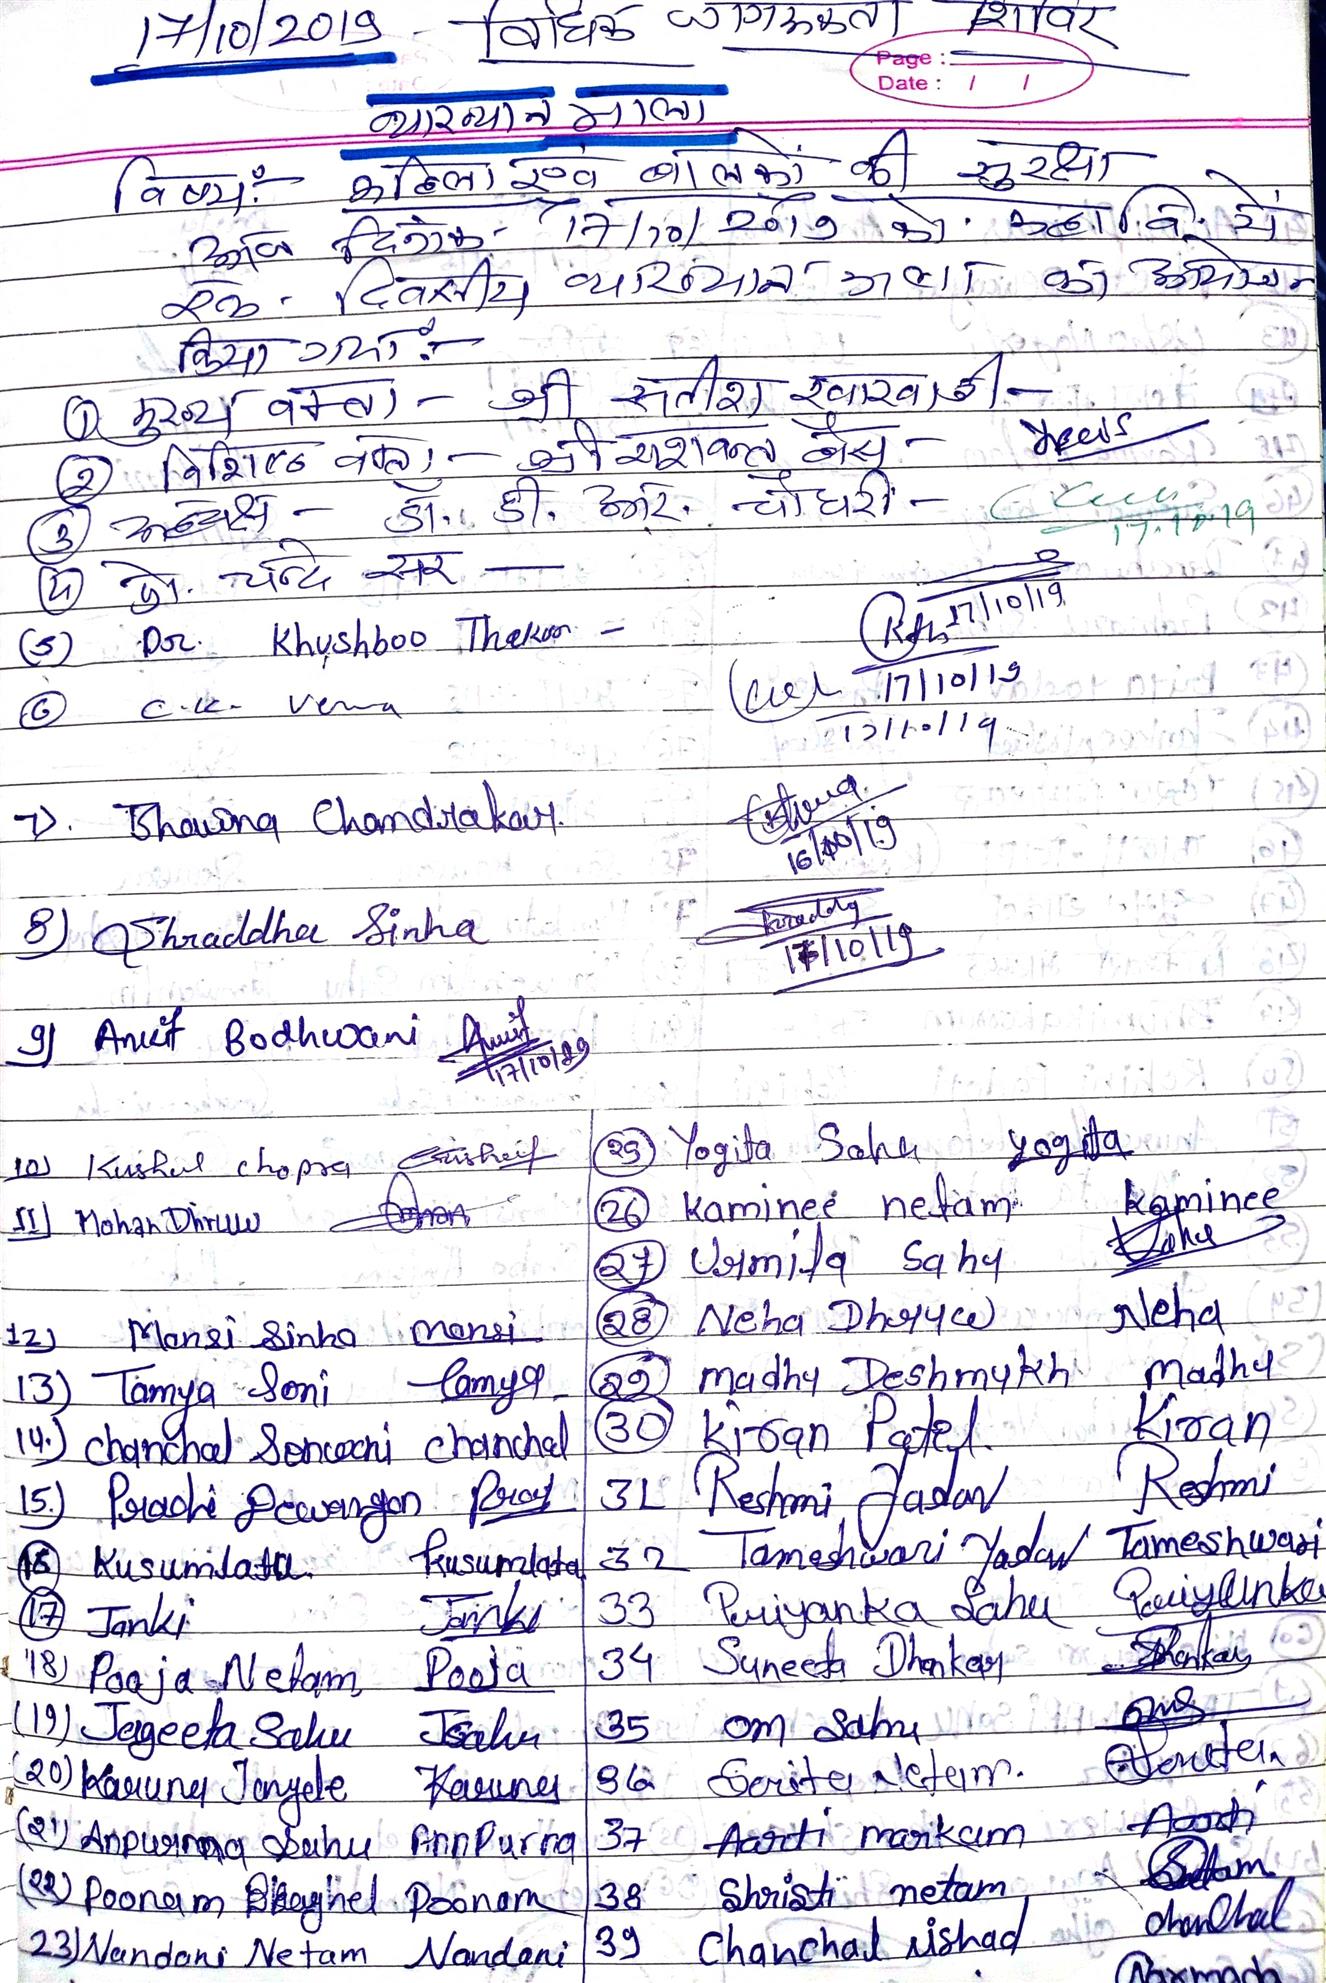 17/10/2019 - विधिक जागरूकता शिविर
Page :
Date : / /
व्याख्यान माला
विषय :- महिला एवं बालकों की सुरक्षा
आज दिनांक - 17/10/2019 को
एक - दिवसीय व्याख्यान माला का आयोजन
किया गया :-
① मुख्य वक्ता - श्री सतीश
② विशिष्ट वक्ता - श्री यशवन्त बैस -
③ अध्यक्ष - डॉ. डी. आर. चौधरी -
17.10.19
④ प्रो. सर —
17/10/19
(5) Dr. Khushboo Thakur -
17/10/19
⑥ C.K. Verma
17/10/19
7). Bhawna Chandrakar.
16/10/19
8) Shraddha Sinha Shraddha
17/10/19
9) Ankit Bodhwani Ankit
17/10/19
10) Kushal chopra
11) Mohan Dhruw Mohan
12) Mansi Sinha Mansi
13) Tamya Soni Tamya
14.) Chanchal Sonwani Chanchal
15.) Prachi Dewangan
16 Kusumlata Kusumlata
17 Janki Janki
18) Pooja Netam Pooja
(19) Jageeta Sahu Jsahu
(20) Karuna Karuna
(21) Annpurna Sahu AnnPurna
(22) Poonam Baghel Poonam
23) Nandani Netam Nandani
25 Yogita Sahu Yogita
26 Kaminee netam Kaminee
27 Urmila Sahu
28 Neha Dhruw Neha
29 Madhu Deshmukh Madhu
30 Kiran Patel. Kiran
31 Reshmi Yadav Reshmi
32 Tameshwari Yadav Tameshwari
33 Priyanka Sahu Priyanka
34 Suneeta Dhankar Dhankar
35 Om Sahu
36 Sarita Netam.
37 Aarti markam Aarti
38 Shristi netam
39 Chanchal Nishad Chanchal